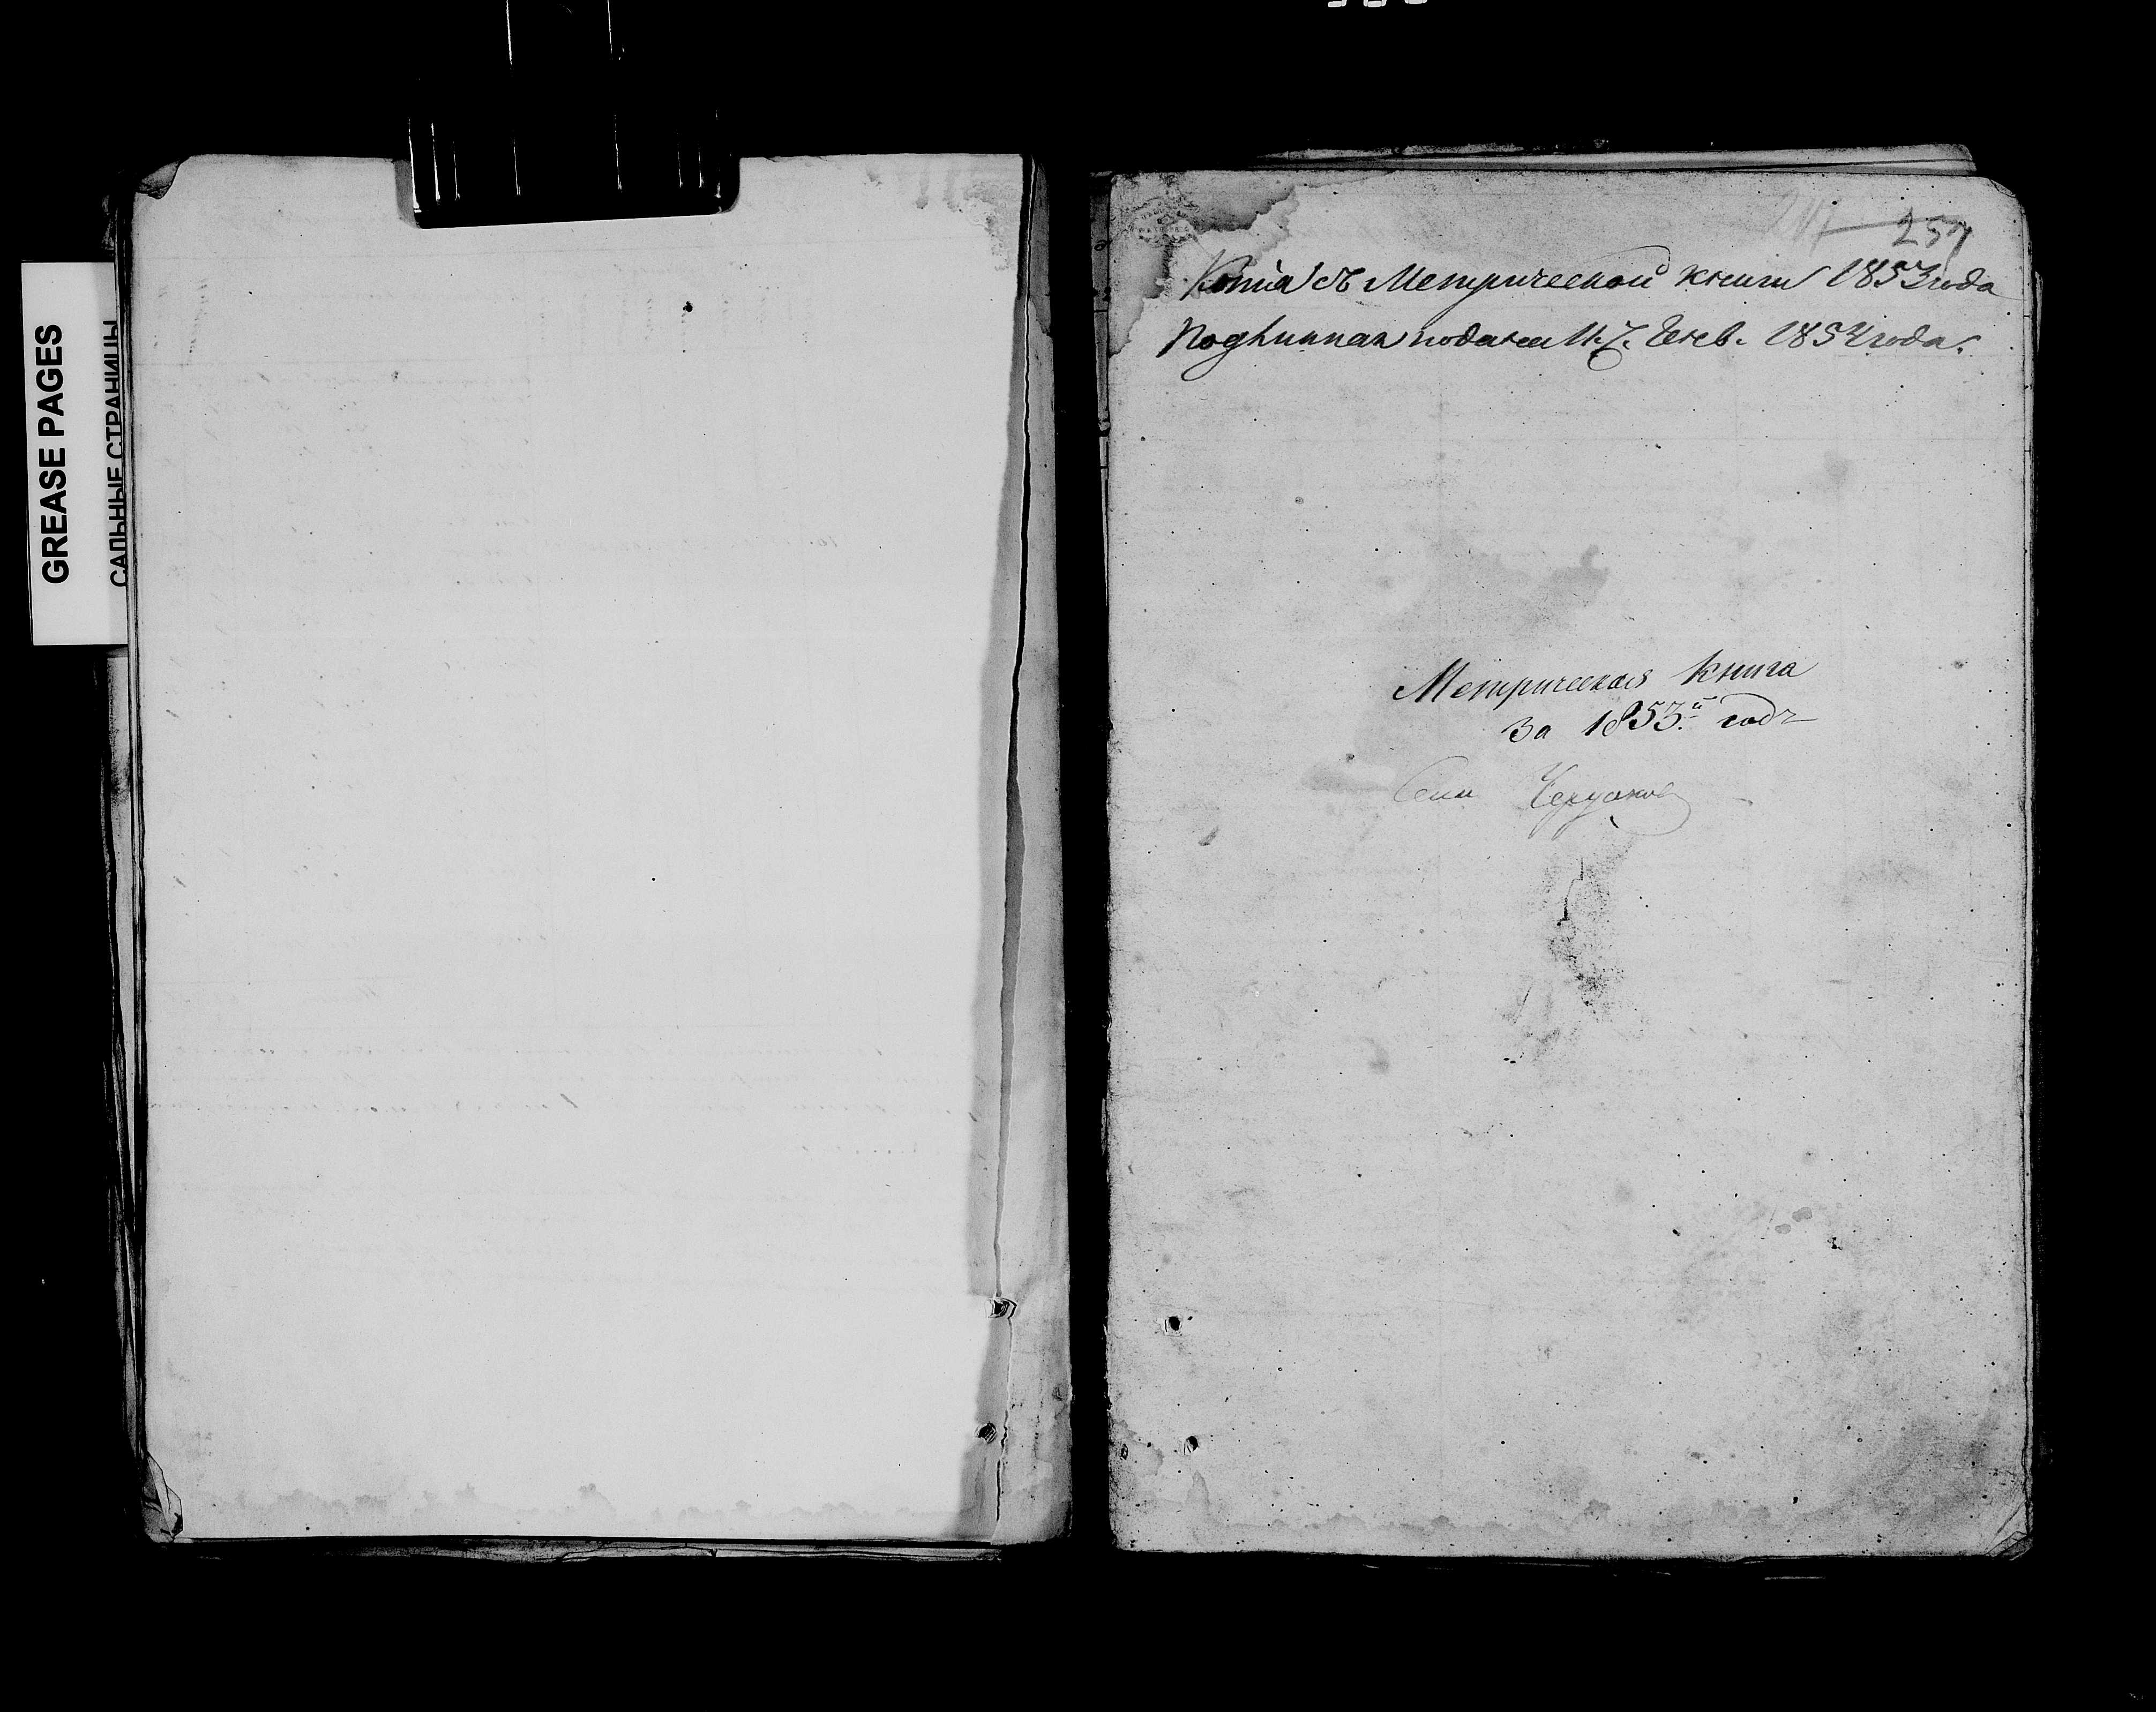 GREASE PAGES
САЛЬНЫЕ СТРАНИЦЫ
257
Копія съ Метрической книги 1853 года
Подлинная подана Генв. 1854 года.
Метрическая книга
за 1853й годъ
Села